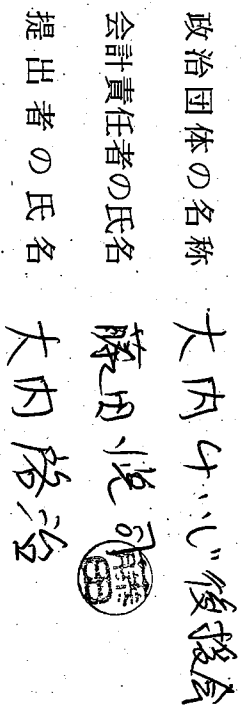 政治団体の名称 大内けいじ後援会
会計責任者の氏名 藤田悦司
提出者の氏名 大内啓治